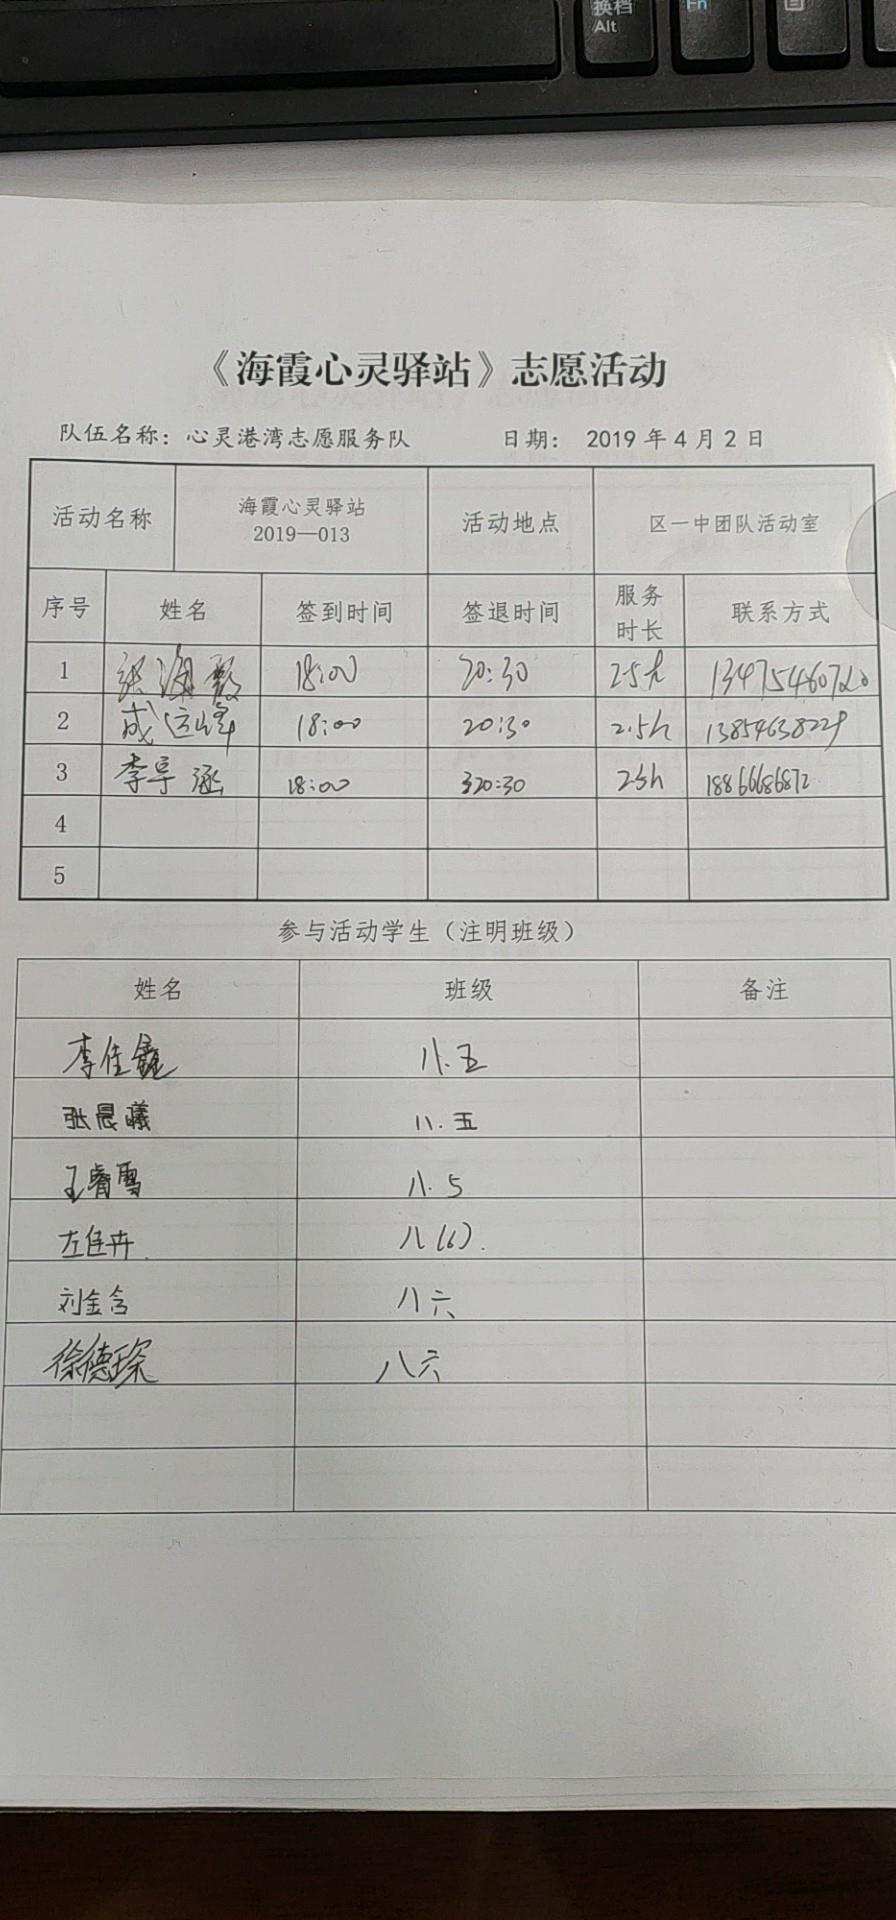 换档 Fn
Alt
《海霞心灵驿站》志愿活动
队伍名称：心灵港湾志愿服务队 日期： 2019 年 4 月 2 日
活动名称 海霞心灵驿站 2019—013 活动地点 区一中团队活动室
序号 姓名 签到时间 签退时间 服务时长 联系方式
1 张海霞 18:00 20:30 2.5h
2 成运峰 18:00 20:30 2.5h 13854638229
3 李宇涵 18:00 320:30 2.5h 18866686872
4
5
参与活动学生（注明班级）
姓名 班级 备注
李佳鑫 八.五
张晨曦 八.五
王睿雪 八.5
左佳卉 八(6).
刘金含 八六
徐德琛 八六